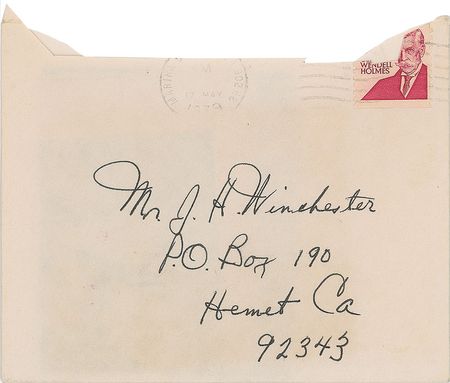 WENDELL
HOLMES
17 MAY
1979
Mr J. H. Winchester
P.O. Box 190
Hemet Ca
92343